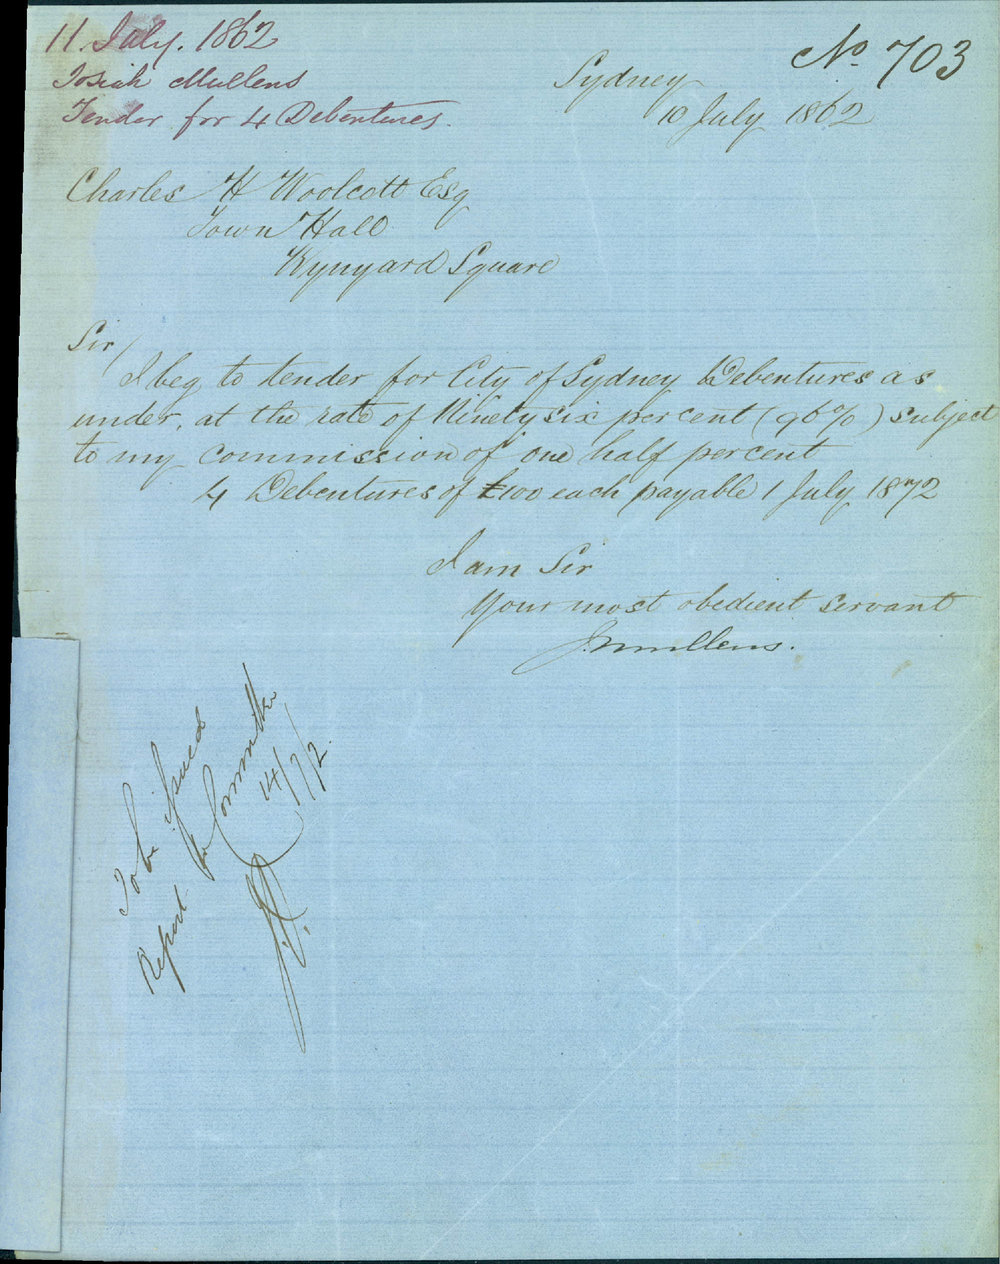 11. July. 1862
Josiah Mullens
Tender for 4 Debentures.
No 703
Sydney
10 July 1862
Charles H Woolcott Esq
Town Hall
Wynyard Square
Sir/
I beg to tender for City of Sydney Debentures as
under, at the rate of Ninety six per cent (96%) subject
to my commission of one half per cent
4 Debentures of £100 each payable 1 July 1872
I am Sir
Your most obedient servant
J Mullens.
To be issued
Report to Committee
14/7/2